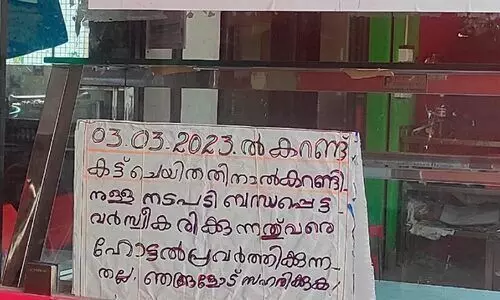 03.03.2023.ൽ കറണ്ട്
കട്ട് ചെയ്തതിനാൽ കറണ്ടി-
നുള്ള നടപടി ബന്ധപ്പെട്ട
വർ സ്വീകരിക്കുന്നതുവരെ
ഹോട്ടൽ പ്രവർത്തിക്കുന്ന-
തല്ല. ഞങ്ങളോട് സഹരിക്കുക